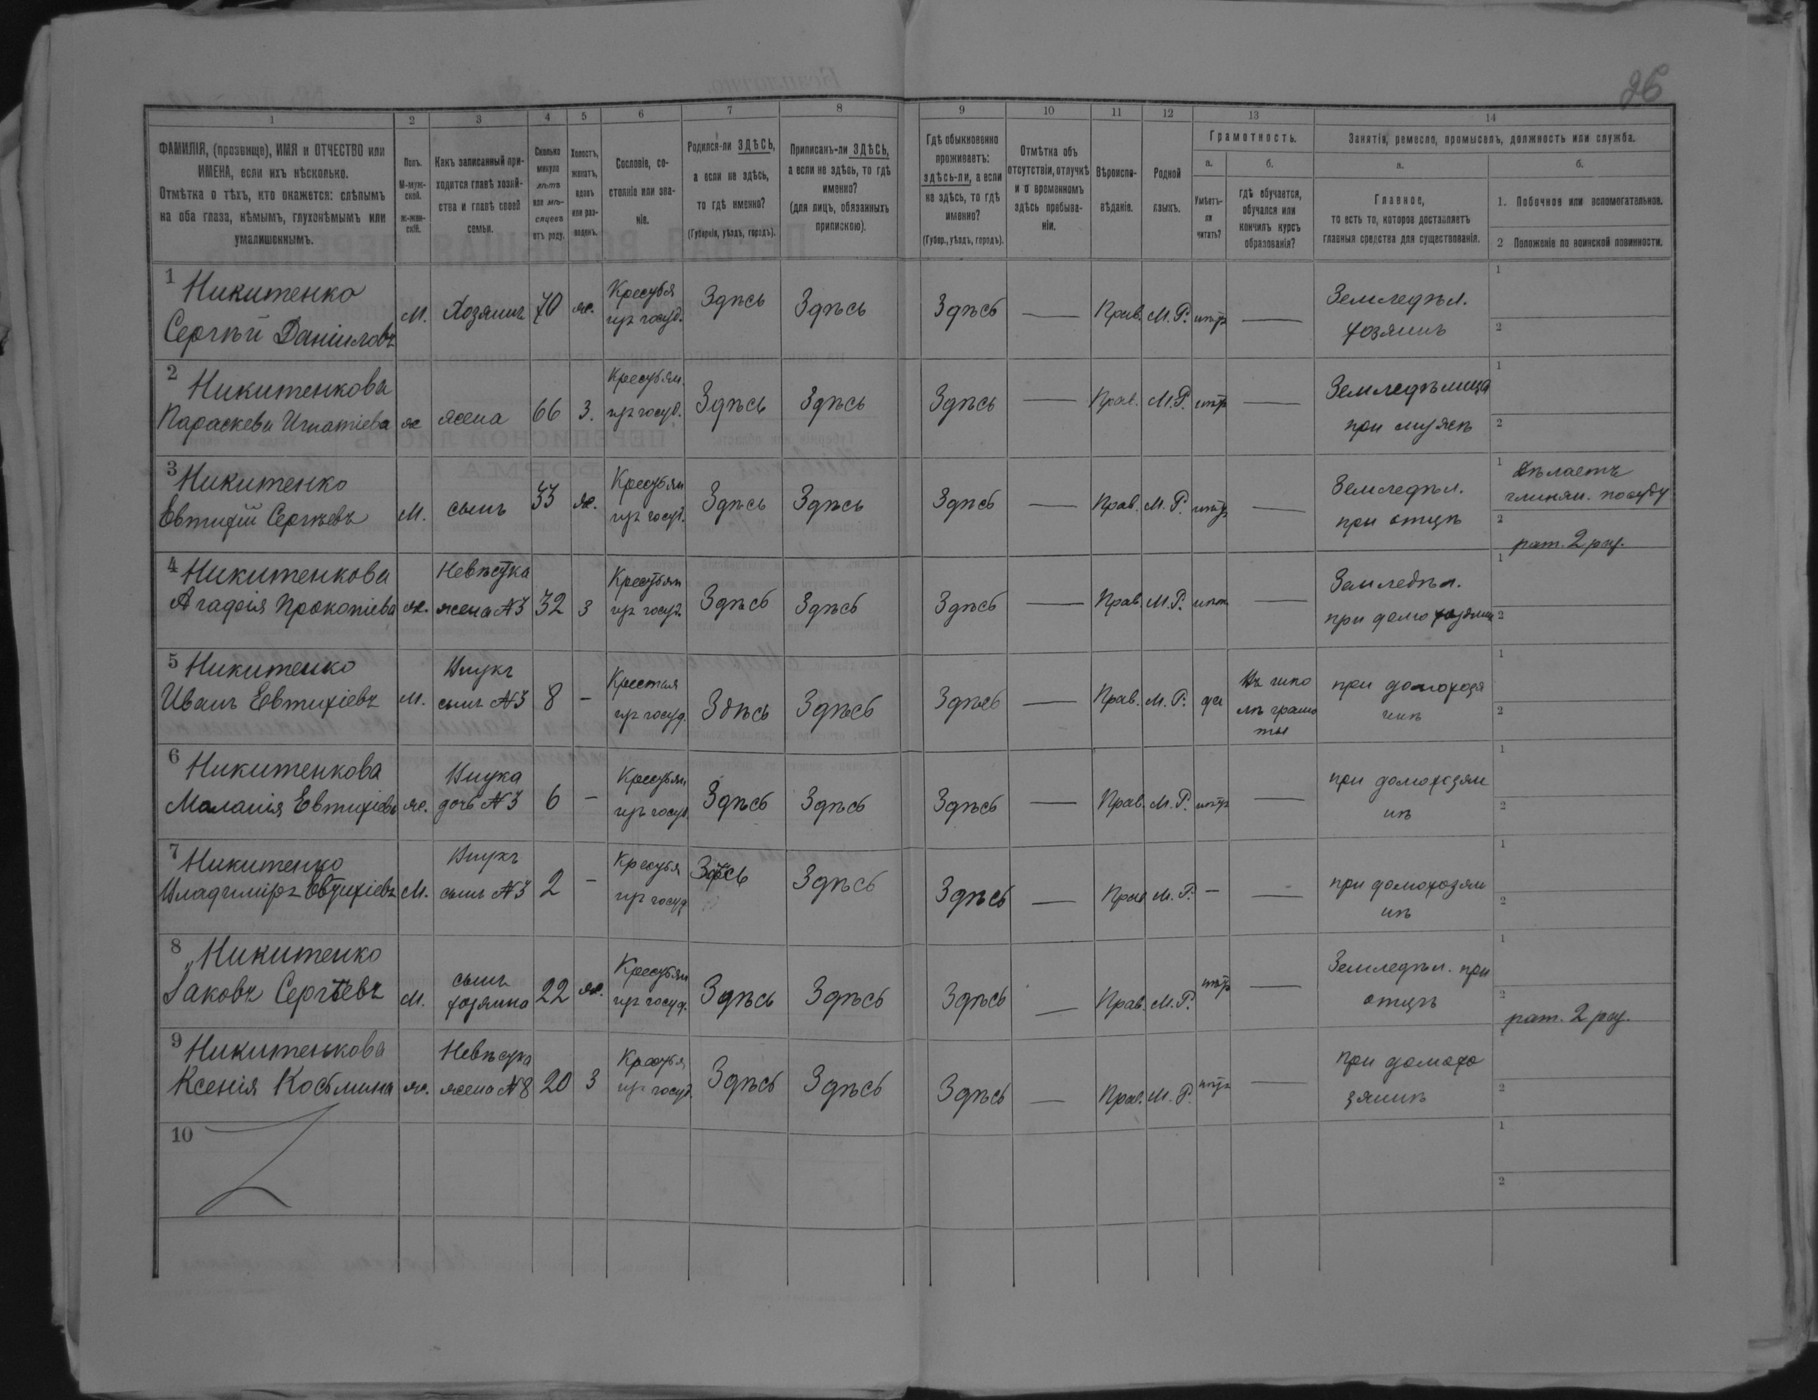 26
1 2 3 4 5 6 7 8 9 10 11 12 13 14
ФАМИЛІЯ, (прозвище), ИМЯ и ОТЧЕСТВО или
ИМЕНА, если ихъ нѣсколько.
Отмѣтка о тѣхъ, кто окажется: слѣпымъ
на оба глаза, нѣмымъ, глухонѣмымъ или
умалишеннымъ.
Полъ.
М-муж-
ской.
ж-жен-
скій.
Какъ записанный при-
ходится главѣ хозяй-
ства и главѣ своей
семьи.
Сколько
минуло
лѣтъ
или мѣ-
сяцевъ
отъ роду.
Холостъ,
женатъ,
вдовъ
или раз-
веденъ.
Сословіе, со-
стояніе или зва-
ніе.
Родился-ли ЗДѢСЬ,
а если не здѣсь,
то гдѣ именно?
(Губернія, уѣздъ, городъ).
Приписанъ-ли ЗДѢСЬ,
а если не здѣсь, то гдѣ
именно?
(для лицъ, обязанныхъ
припискою).
Гдѣ обыкновенно
проживаетъ:
здѣсь-ли, а если
не здѣсь, то гдѣ
именно?
(Губер., уѣздъ, городъ).
Отмѣтка объ
отсутствіи, отлучкѣ
и о временномъ
здѣсь пребыва-
ніи.
Вѣроиспо-
вѣданіе.
Родной
языкъ.
Грамотность.
а.
Умѣетъ-
ли
читать?
б.
Гдѣ обучается,
обучался или
кончилъ курсъ
образованія?
Занятіе, ремесло, промыселъ, должность или служба.
а.
Главное,
то есть то, которое доставляетъ
главныя средства для существованія.
б.
1. Побочное или вспомогательное.
2 Положеніе по воинской повинности.
1 Никитенко
Сергѣй Даніиловъ
М. Хозяинъ 70 ж.
Крестья
изъ госуд.
Здѣсь Здѣсь Здѣсь — Прав. М. Р. нѣтъ —
Земледѣл.
хозяинъ
1
2
2 Никитенкова
Параскева Игнатіева
ж жена 66 З.
Крестьян.
изъ госуд.
Здѣсь Здѣсь Здѣсь — Прав. М. Р. нѣтъ —
Земледѣлица
при мужѣ
1
2
3 Никитенко
Евтихій Сергѣевъ
М. сынъ 33 ж.
Крестьян
изъ госуд.
Здѣсь Здѣсь Здѣсь — Прав. М. Р. нѣтъ —
Земледѣл.
при отцѣ
1 дѣлаетъ
глинян. посуду
2
рат. 2 раз.
4 Никитенкова
Агафія Прокопіева
ж.
Невѣстка
жена №3
32 З
Крестьян
изъ госуд.
Здѣсь Здѣсь Здѣсь — Прав. М. Р. нѣт —
Земледѣл.
при домохозяин
1
2
5 Никитенко
Иванъ Евтихіевъ
М.
Внукъ
сынъ №3
8 –
Крестья
изъ госуд
Здѣсь Здѣсь Здѣсь — Прав. М. Р. да
Въ шко
лѣ грамо
ты
при домохозя
инѣ
1
2
6 Никитенкова
Маланія Евтихіева
ж.
Внука
дочь №3
6 –
Крестьян
изъ госуд.
Здѣсь Здѣсь Здѣсь — Прав. М. Р. нѣтъ —
при домохозяи
нѣ
1
2
7 Никитенко
Владиміръ Евтихіевъ
М.
Внукъ
сынъ №3
2 –
Крестья
изъ госуд
Здѣсь Здѣсь Здѣсь — Прав М. Р. – —
при домохозяи
нѣ
1
2
8 Никитенко
Іаковъ Сергѣевъ
М.
сынъ
хозяина
22 ж.
Крестьян
изъ госуд.
Здѣсь Здѣсь Здѣсь — Прав. М. Р. нѣтъ —
Земледѣл. при
отцѣ
1
2
рат. 2 раз.
9 Никитенкова
Ксенія Косьмина
ж.
Невѣстка
жена №8
20 З
Крестья
изъ госуд.
Здѣсь Здѣсь Здѣсь — Прав. М. Р. нѣтъ —
При домохо
зяинѣ
1
2
10
1
2